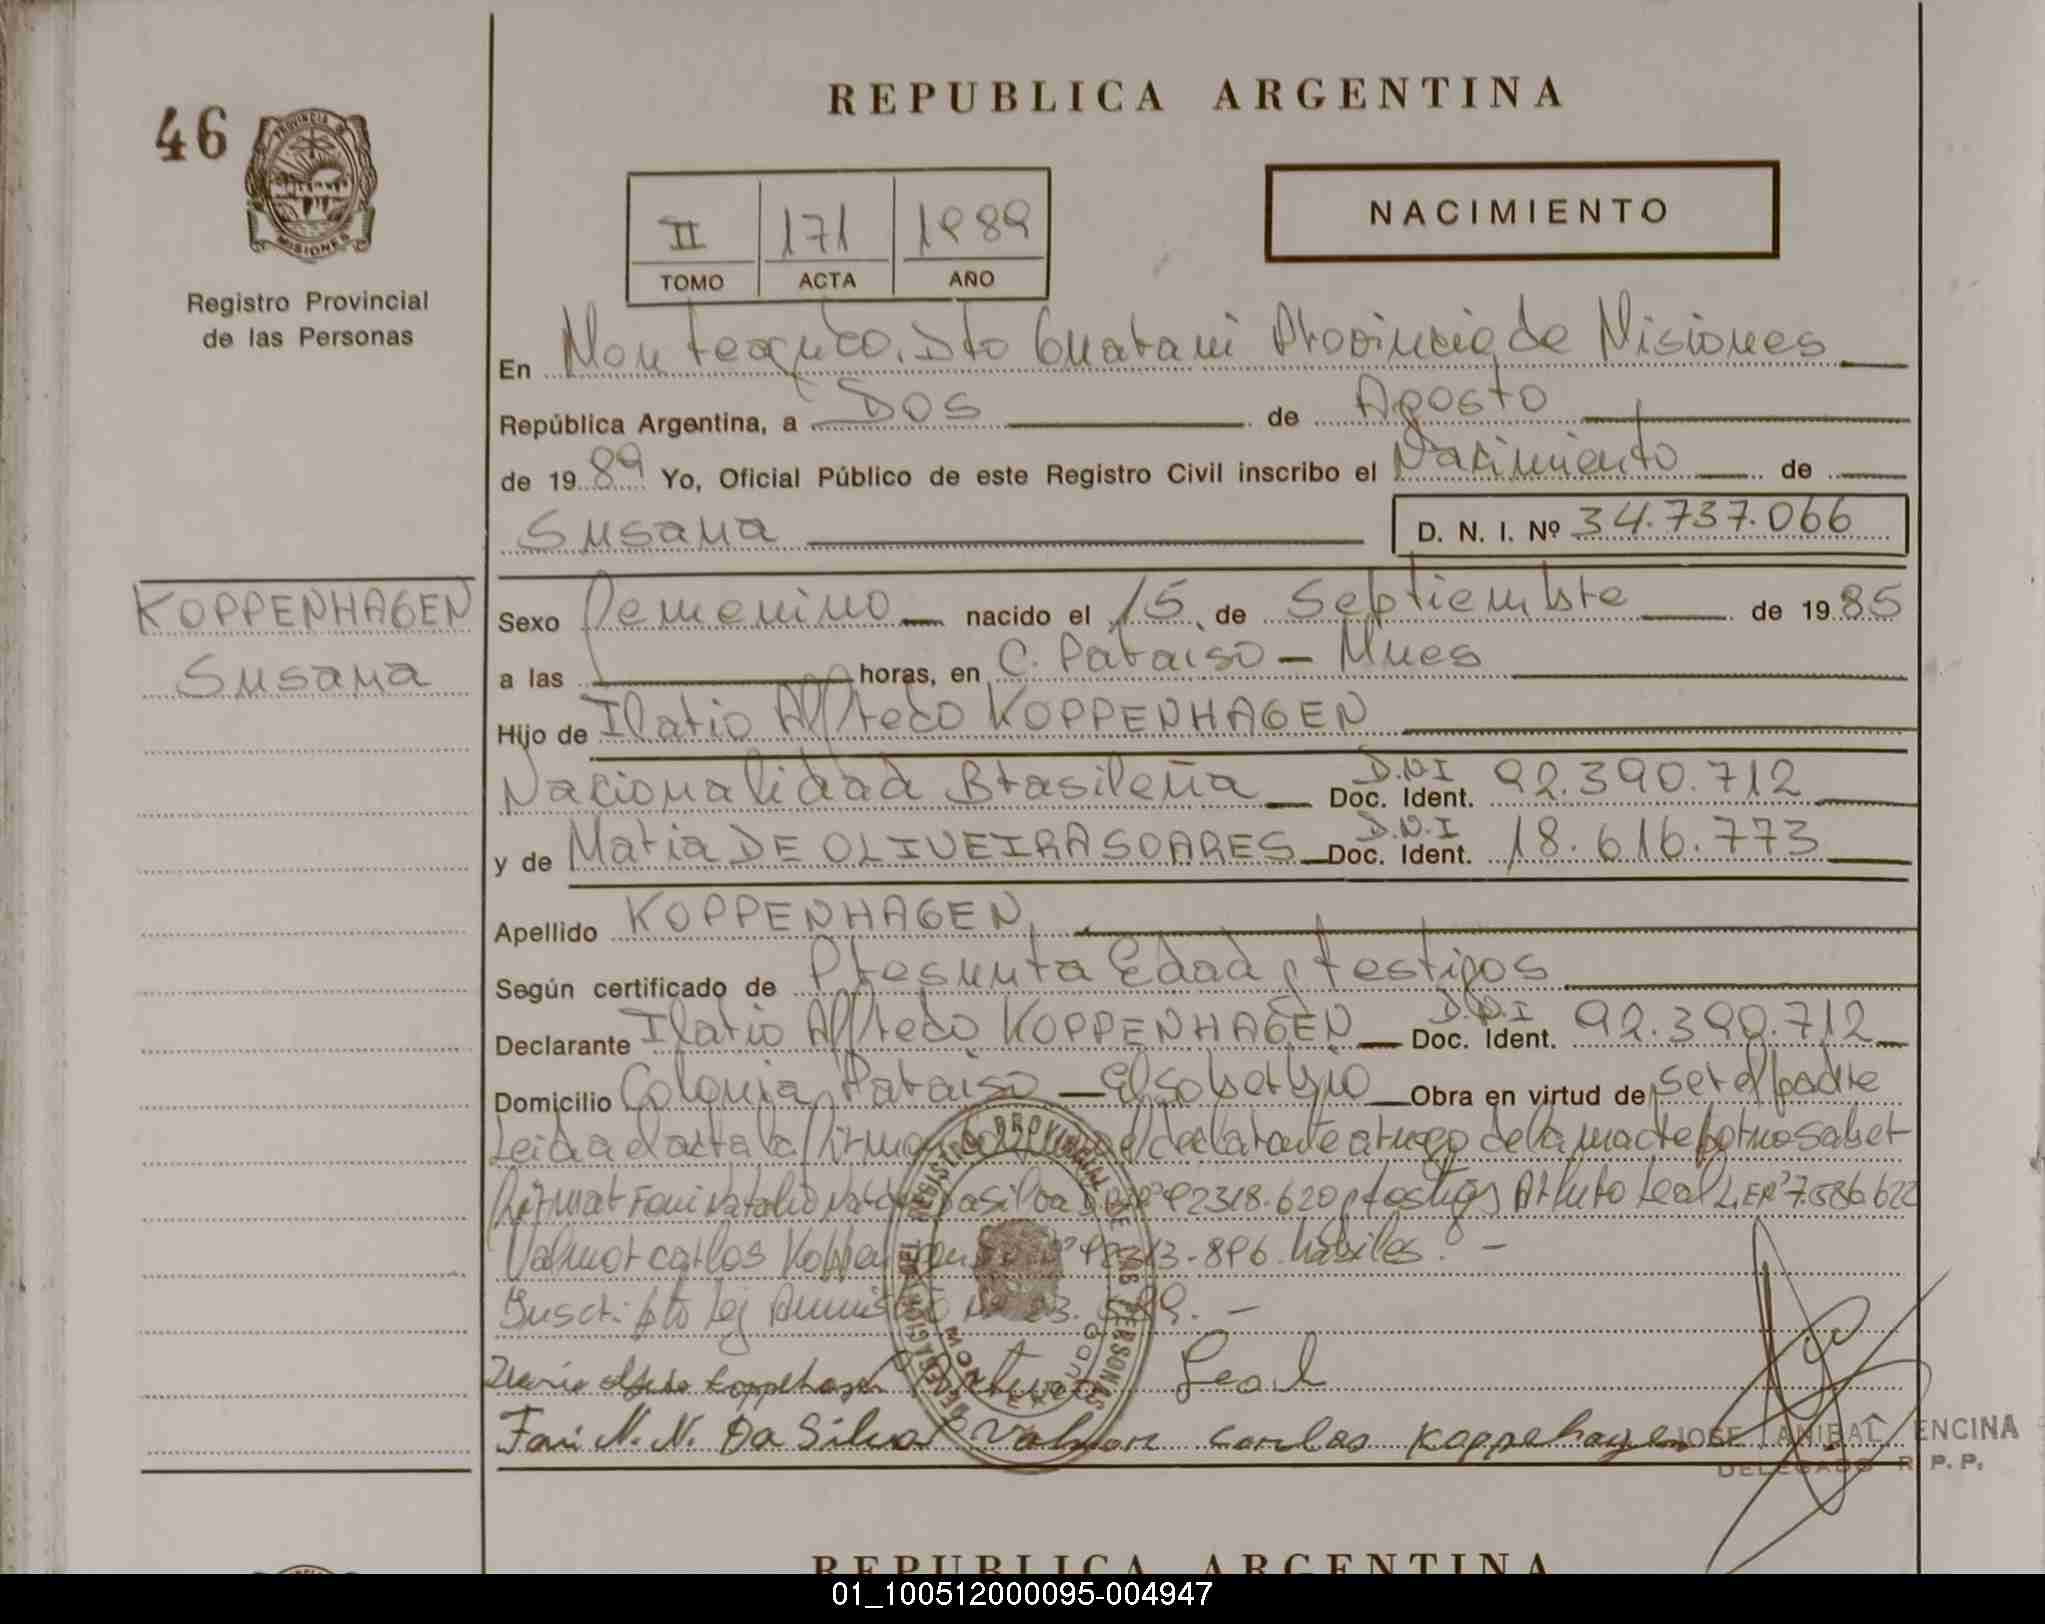 REPUBLICA ARGENTINA
46
PROVINCIA DE
MISIONES
Registro Provincial
de las Personas
II 171 1989
TOMO ACTA AÑO
NACIMIENTO
En Monteagudo. Dto Guarani Provincia de Misiones
República Argentina, a Dos de Agosto
de 1989 Yo, Oficial Público de este Registro Civil inscribo el Nacimiento de
Susana D. N. I. Nº 34.737.066
KOPPENHAGEN
Susana
Sexo Femenino nacido el 15 de Septiembre de 1985
a las horas, en C. Paraiso - Mnes
Hijo de Ilario Alfredo KOPPENHAGEN
Nacionalidad Brasileña D.N.I Doc. Ident. 92.390.712
y de Maria DE OLIVEIRA SOARES D.N.I Doc. Ident. 18.616.773
Apellido KOPPENHAGEN
Según certificado de Presunta Edad y testigos
Declarante Ilario Alfredo KOPPENHAGEN D.N.I Doc. Ident. 92.390.712
Domicilio Colonia Paraiso - El Soberbio Obra en virtud de ser el padre
Leida el acta la firman el declarante a ruego de la madre por no saber
firmar Foni Natalio da Silva testigos Arturo Leal
Valmor carlos habiles. -
Arturo Leal
N. N. Da Silva Valmor Carlos Koppehagen
JOSE ANIBAL ENCINA
DELEGADO R. P. P.
REPUBLICA ARGENTINA
01_100512000095-004947